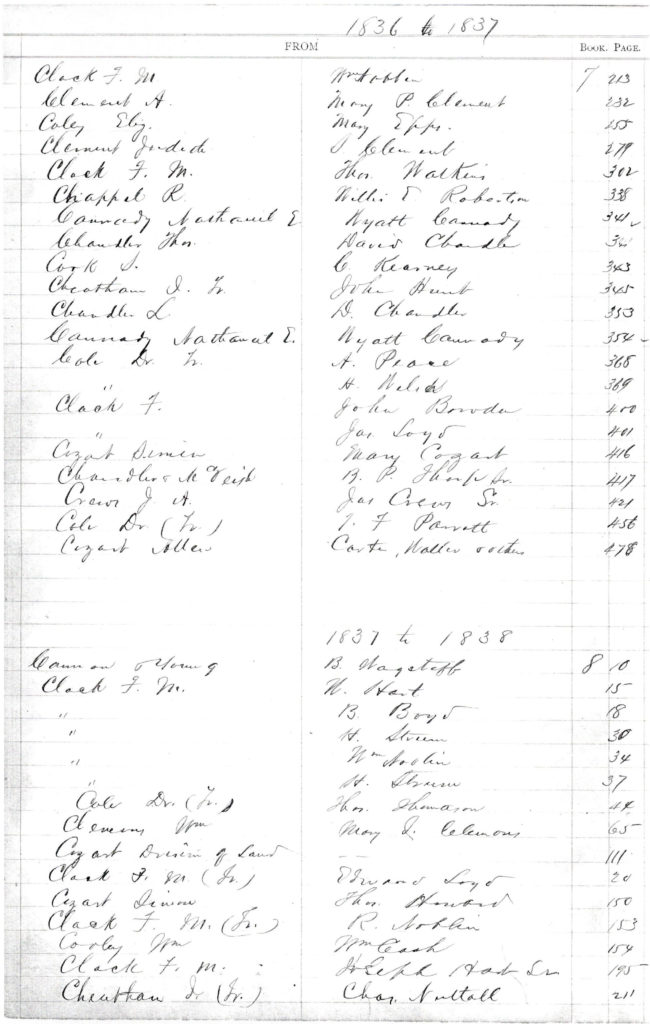 1836 to 1837
FROM BOOK. PAGE.
Clack F. M Wm Noblin 7 213
Clement A. Mary P. Clement 232
Coley Eliz. Mary Epps. 255
Clement Judith J Clement 279
Clack F. M. Thos. Watkins 302
Chappel R. Willis E Robertson 338
Cannady Nathaniel E. Wyatt Cannady 341
Chandler Thos. David Chandler
Cook S. C. Kearney 343
Cheatham I. Tr. John Hunt 345
Chandler L D. Chandler 353
Cannady Nathaniel E. Wyatt Cannady 354
Cole Dr. Tr. A. Peace 368
" H. Welsh 369
Clack F. John Bowden 400
" Jas Loyd 401
Cozart Simeon Mary Cozart 416
Chandler & McVeigh B. P. Thorp Sr. 417
Crews J. A. Jas Crews Sr. 421
Cole Dr (Tr.) T. F Parrott 456
Cozart Carter, Waller & others 478
1837 to 1838
Cannon & Young B. Wagstaff 8 10
Clack F. M. W. Hart 15
" B. Boyd 18
" H. Strum 30
" Wm Noblin 34
" H. Strum 37
Cole Dr. (Tr.) Thos. Thomason 44
Clemons Wm Mary J. Clemons 65
Cozart Division of Land — 111
Clack F. M. (Tr.) Edward Loyd 20
Cozart Simeon Thos. Howard 150
Clack F. M. (Tr.) R. Noblin 153
Cooley Wm Wm Cash 154
Clack F. M. Joseph Hart Sr. 195
Cheatham Ir (Tr.) Chas. Nuttall 211